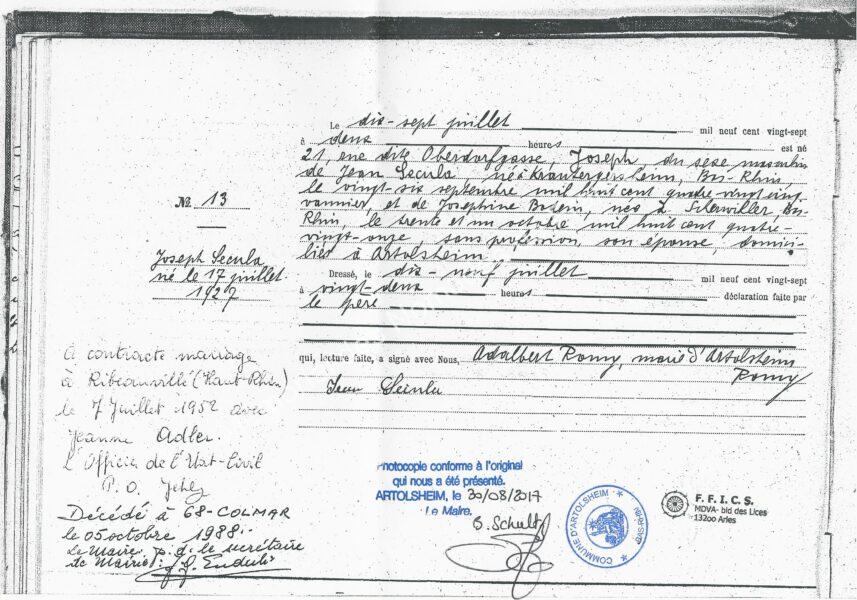 Nº 13
Joseph Secula
né le 17 juillet
1927
A contracté mariage
à Ribeauvillé (Haut-Rhin)
le 7 Juillet 1952 avec
Jeanne Adler.
L'Officier de l'Etat-Civil
P.O.
Décédé à 68-COLMAR
le 05 octobre 1988.
Le Maire, p.d. le secrétaire
de Mairie:
Le dix-sept juillet mil neuf cent vingt-sept
à deux heures est né
21, rue dite Oberdorfgasse, Joseph, du sexe masculin
de Jean Secula, né à Krautergersheim, Bas-Rhin,
le vingt-six septembre mil huit cent quatre-vingt-cinq
vannier, et de Josephine , née à Scherwiller, Bas-
Rhin, le trente et un octobre mil huit cent quatre-
vingt-onze, sans profession, son épouse, domici-
liés à Artolsheim.
Dressé, le dix-neuf juillet mil neuf cent vingt-sept
à vingt-deux heures déclaration faite par
le père
qui, lecture faite, a signé avec Nous, Adalbert Romy, maire d'Artolsheim
Romy
Jean Secula
hotocopie conforme à l'original
qui nous a été présenté.
ARTOLSHEIM, le 30/08/2017
Le Maire,
COMMUNE D'ARTOLSHEIM
BAS-RHIN
F.F.I.C.S.
MDVA- bld des Lices
13200 Arles